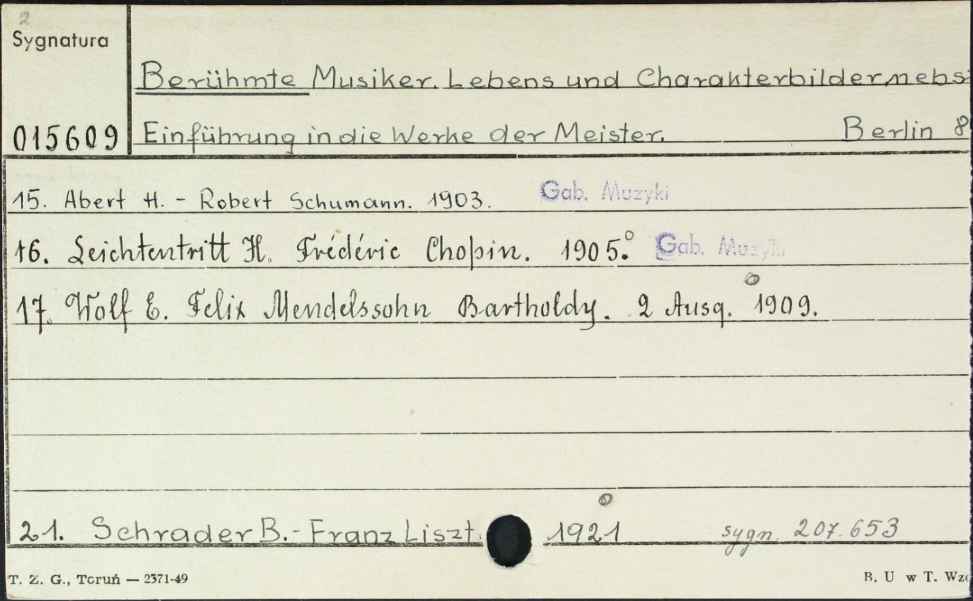 2
Sygnatura
Berühmte Musiker. Lebens und Charakterbilder, nebs
015609 Einführung in die Werke der Meister. Berlin 8
15. Abert H. - Robert Schumann. 1903. Gab. Muzyki
16. Leichtentritt H. Frédéric Chopin. 1905. Gab. Muzyki
17. Wolf E. Felix Mendelssohn Bartholdy. 2 Ausg. 1909.
21. Schrader B. - Franz Liszt. 1921 sygn. 207.653
T. Z. G., Toruń — 2371-49 B. U w T. Wzo